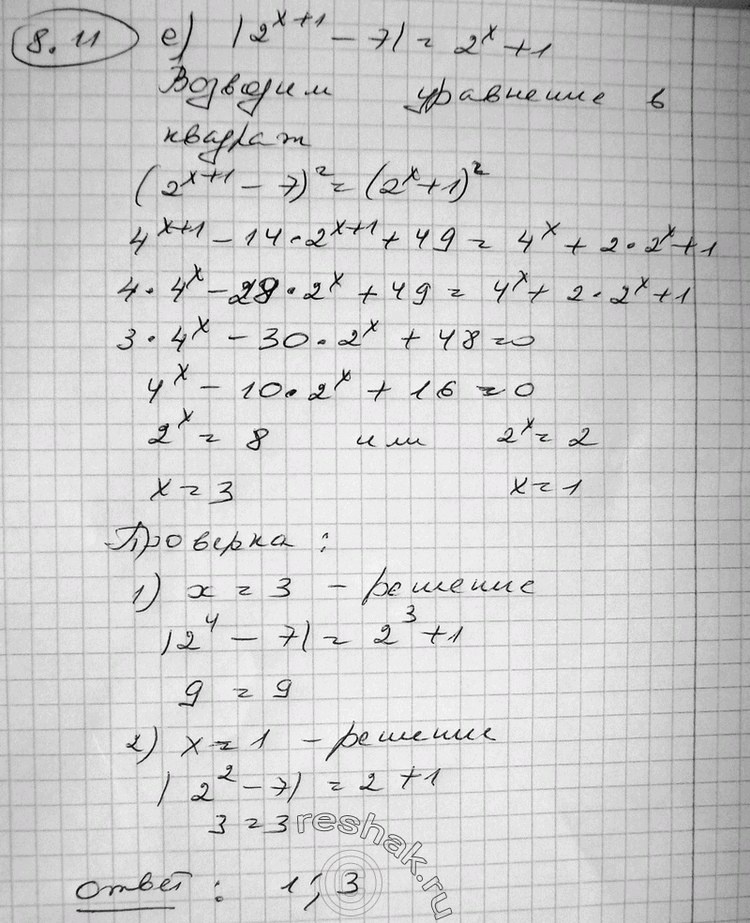 8.11 е) |2^{x+1} - 7| = 2^x + 1
Возводим уравнение в
квадрат
(2^{x+1} - 7)^2 = (2^x + 1)^2
4^{x+1} - 14 · 2^{x+1} + 49 = 4^x + 2 · 2^x + 1
4 · 4^x - 28 · 2^x + 49 = 4^x + 2 · 2^x + 1
3 · 4^x - 30 · 2^x + 48 = 0
4^x - 10 · 2^x + 16 = 0
2^x = 8 или 2^x = 2
x = 3 x = 1
Проверка:
1) x = 3 - решение
|2^4 - 7| = 2^3 + 1
9 = 9
2) x = 1 - решение
|2^2 - 7| = 2 + 1
3 = 3
reshak.ru
Ответ: 1; 3